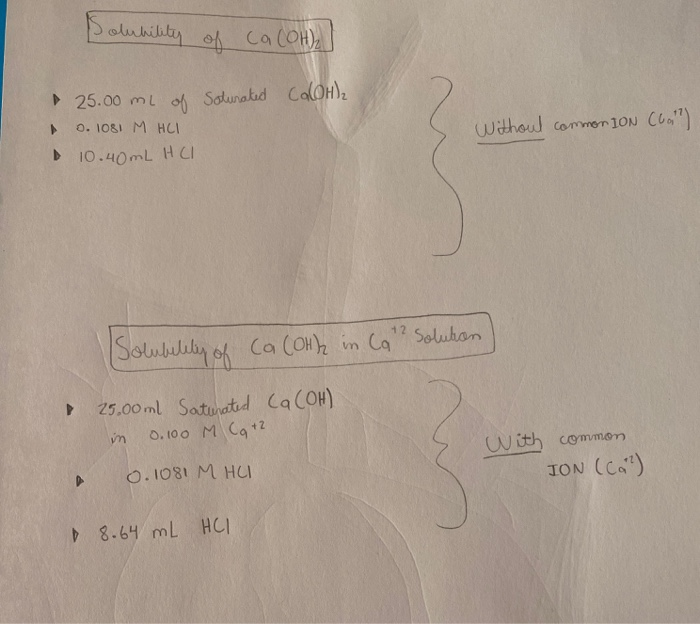 Solubility of Ca(OH)₂
▸ 25.00 mL of Saturated Ca(OH)₂
▸ 0.1081 M HCl
▸ 10.40mL HCl
Without common ION (Ca⁺²)
Solubility of Ca(OH)₂ in Ca⁺² Solution
▸ 25.00ml Saturated Ca(OH)
in 0.100 M Ca⁺²
▸ 0.1081 M HCl
▸ 8.64 mL HCl
With common
ION (Ca⁺²)